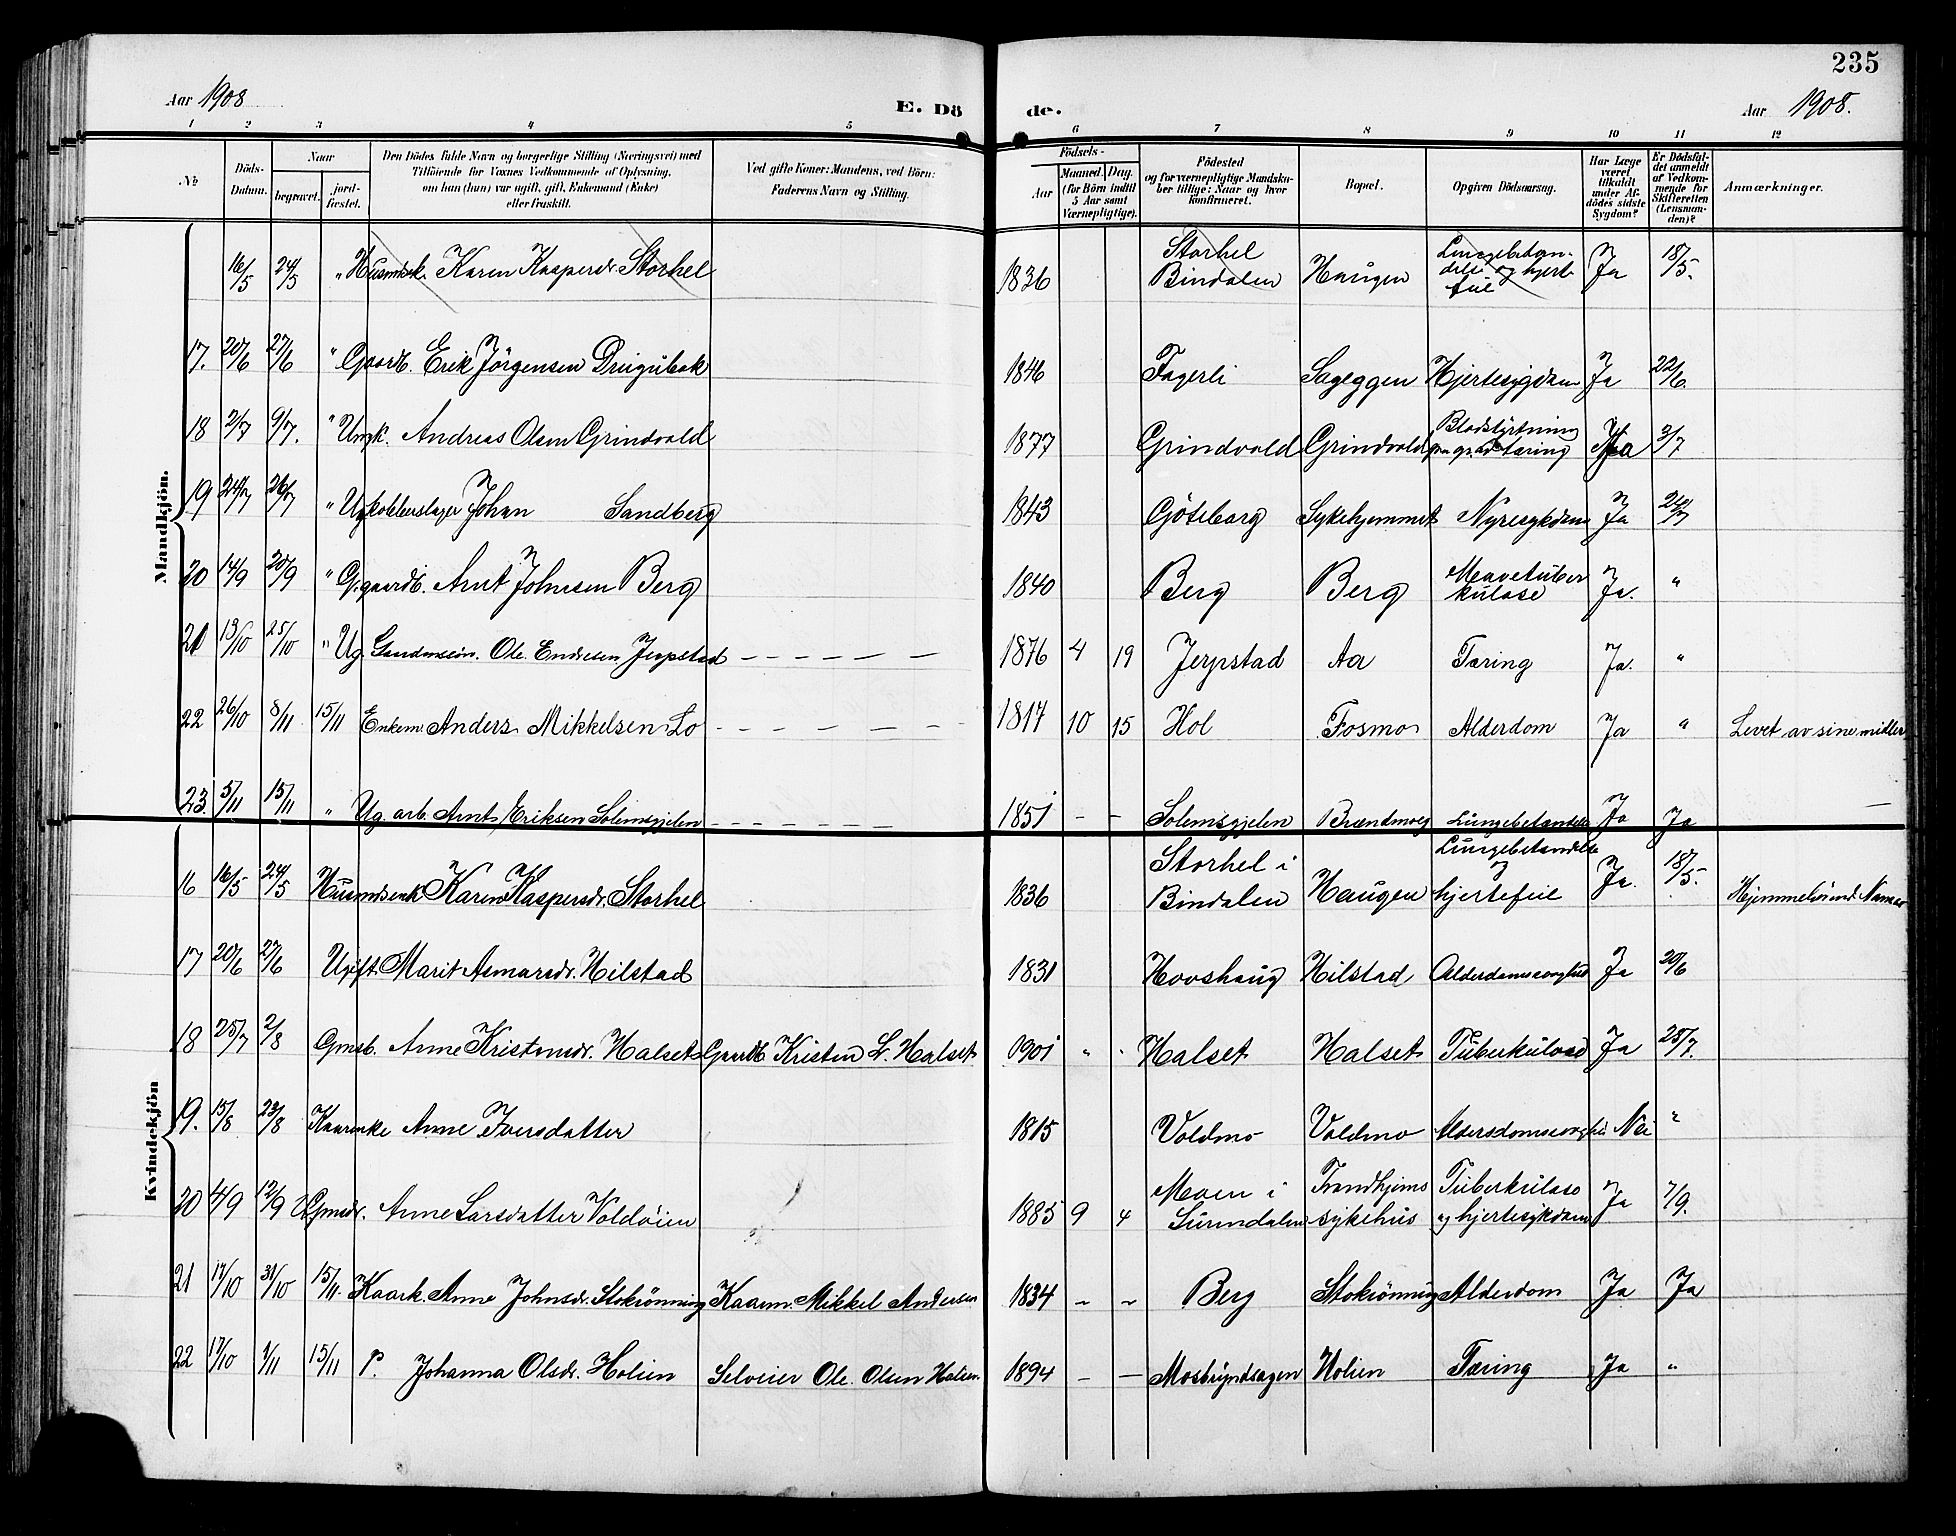 235
Aar 1908
E. Dö
de.
Aar 1908.
1 2 3 4 5 6 7 8 9 10 11 12
No
Döds-
Datum.
Naar
begravet.
jord-
fæstet.
Den Dödes fulde Navn og borgerlige Stilling (Næringsvei) med
Tilföiende for Voxnes Vedkommende af Oplysning,
om han (hun) var ugift, gift, Enkemand (Enke)
eller fraskilt.
Ved gifte Koner: Mandens, ved Börn:
Faderens Navn og Stilling.
Födsels-
Aar
Maaned. Dag.
(for Börn indtil
5 Aar samt
Værnepligtige).
Födested
og for værnepligtige Mandska-
ber tillige: Naar og hvor
konfirmeret.
Bopæl.
Opgiven Dödsaarsag.
Har Læge
været
tilkaldt
under Af-
dödes sidste
Sygdom?
Er Dödsfal-
det anmeldt
af Vedkom-
mende for
Skifteretten
(Lensman-
den)?
Anmærkninger.
Mandkjön.
16/5 24/5 " Husmdsk. Karen Kaspersdr. Storhel 1836 Storhel Bindalen Haugen Lungebetæn-
delse og hjerte
feil Ja 18/5.
17. 20/6 27/6 " Gaardb. Erik Jörgensen 1846 Fagerli Sageggen Hjertesygdom Ja 22/6.
18 2/7 9/7. " Ungk. Andreas Olsen Grindvold 1877 Grindvold Grindvold Blodstyrtning
tæring Ja 3/7
19 24/7 26/7 " Ug kobberslager Johan Sandberg 1843 Göteborg Sykehjemmet Nyresykdom Ja
20 14/9 20/9 " G. gaardb. Arnt Johnsen Berg 1840 Berg Berg Mavetuber
kulose Ja. "
21 13/10 25/10 " Ug. Ole Endresen Jerpstad — — — — — — 1876 4 19 Jerpstad Aa Tæring Ja. "
22 26/10 8/11 15/11 Enkem. Anders Mikkelsen Lo - — — — — — 1817 10 15 Hol Fosmo Alderdom Ja " Levet av sine midler
23. 5/11 15/11 " Ug. arb. Arnt Eriksen Solemsgjelen - — — — — — 1851 - - Solemsgjelen Brændmoeg Lungebetændelse Ja Ja
Kvindekjön
16 16/5 24/5 Husmdsenk Karen Kaspersdr. Storhel 1836 Storhel i
Bindalen Haugen Lungebetændelse
og
hjertefeil Ja. 18/5. Hjemmehörende
17 20/6 27/6 Ugift. Marit Asmarsdr. Hilstad 1831 Hovshaug Hilstad Ja 20/6
18 25/7 2/8 Gmsb. Anne Kristensdr. Halset Gaardb. Kristen L. Halset 1901 " " Halset Halset Tuberkulose Ja 28/7.
19. 15/8 23/8 Kaarenke Anne Iversdatter 1815 Voldmo Voldmo Nei "
20 4/9 12/9 Gmsdr. Anne Larsdatter Voldöien 1885 9 4 Moen i
Surindalen Trondhjems
sykehus Tuberkulose
og hjertesykdom Ja 7/9.
21 17/10 31/10 15/11. Kaark. Anne Johnsdr. Stokrönning Kaarm. Mikkel Andersen 1834 - - Berg Stokrönning Alderdom Ja Ja
22 17/10 1/11 15/11 P. Johanna Olsdr. Holien Selveier Ole Olsen Holien. 1894 — — Holien Tæring Ja "